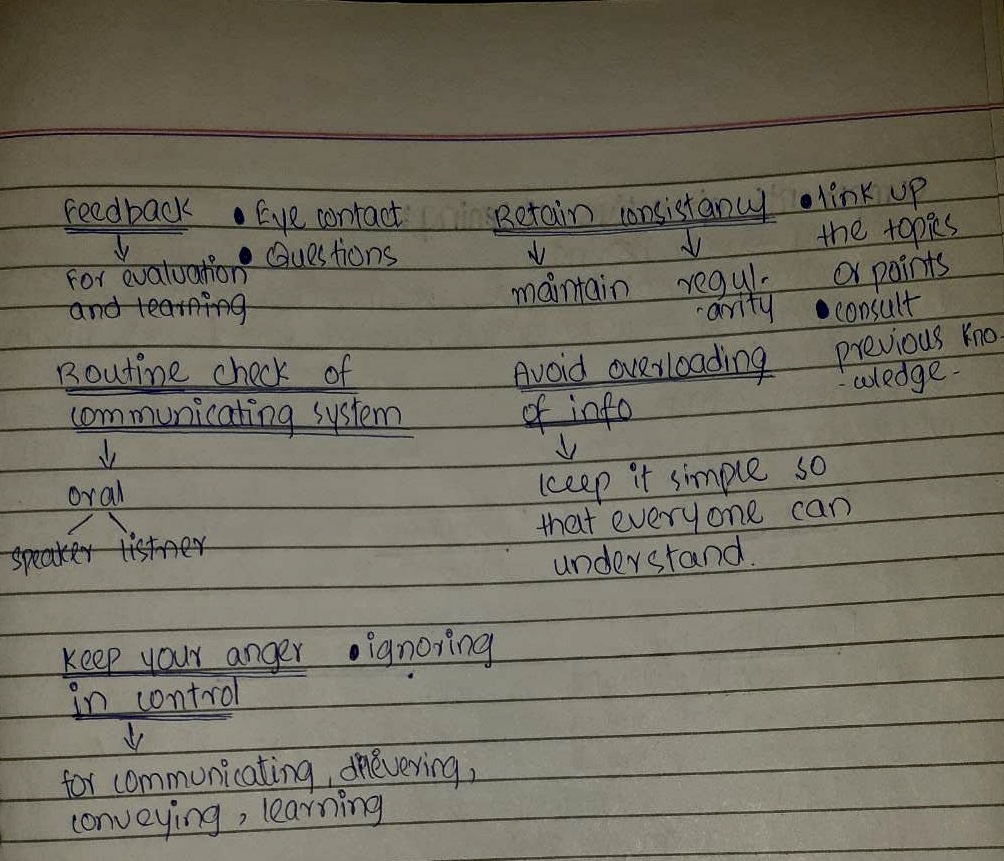 Feedback • Eye contact
• Questions
↓
For evaluation
and learning
Retain consistancy
↓ ↓
maintain regul-
-arity
• link up
the topics
or points
• consult
previous kno-
-wledge-
Routine check of
communicating system
↓
oral
speaker listner
Avoid overloading
of info
↓
keep it simple so
that everyone can
understand.
Keep your anger • ignoring
in control
↓
for communicating,
conveying, learning